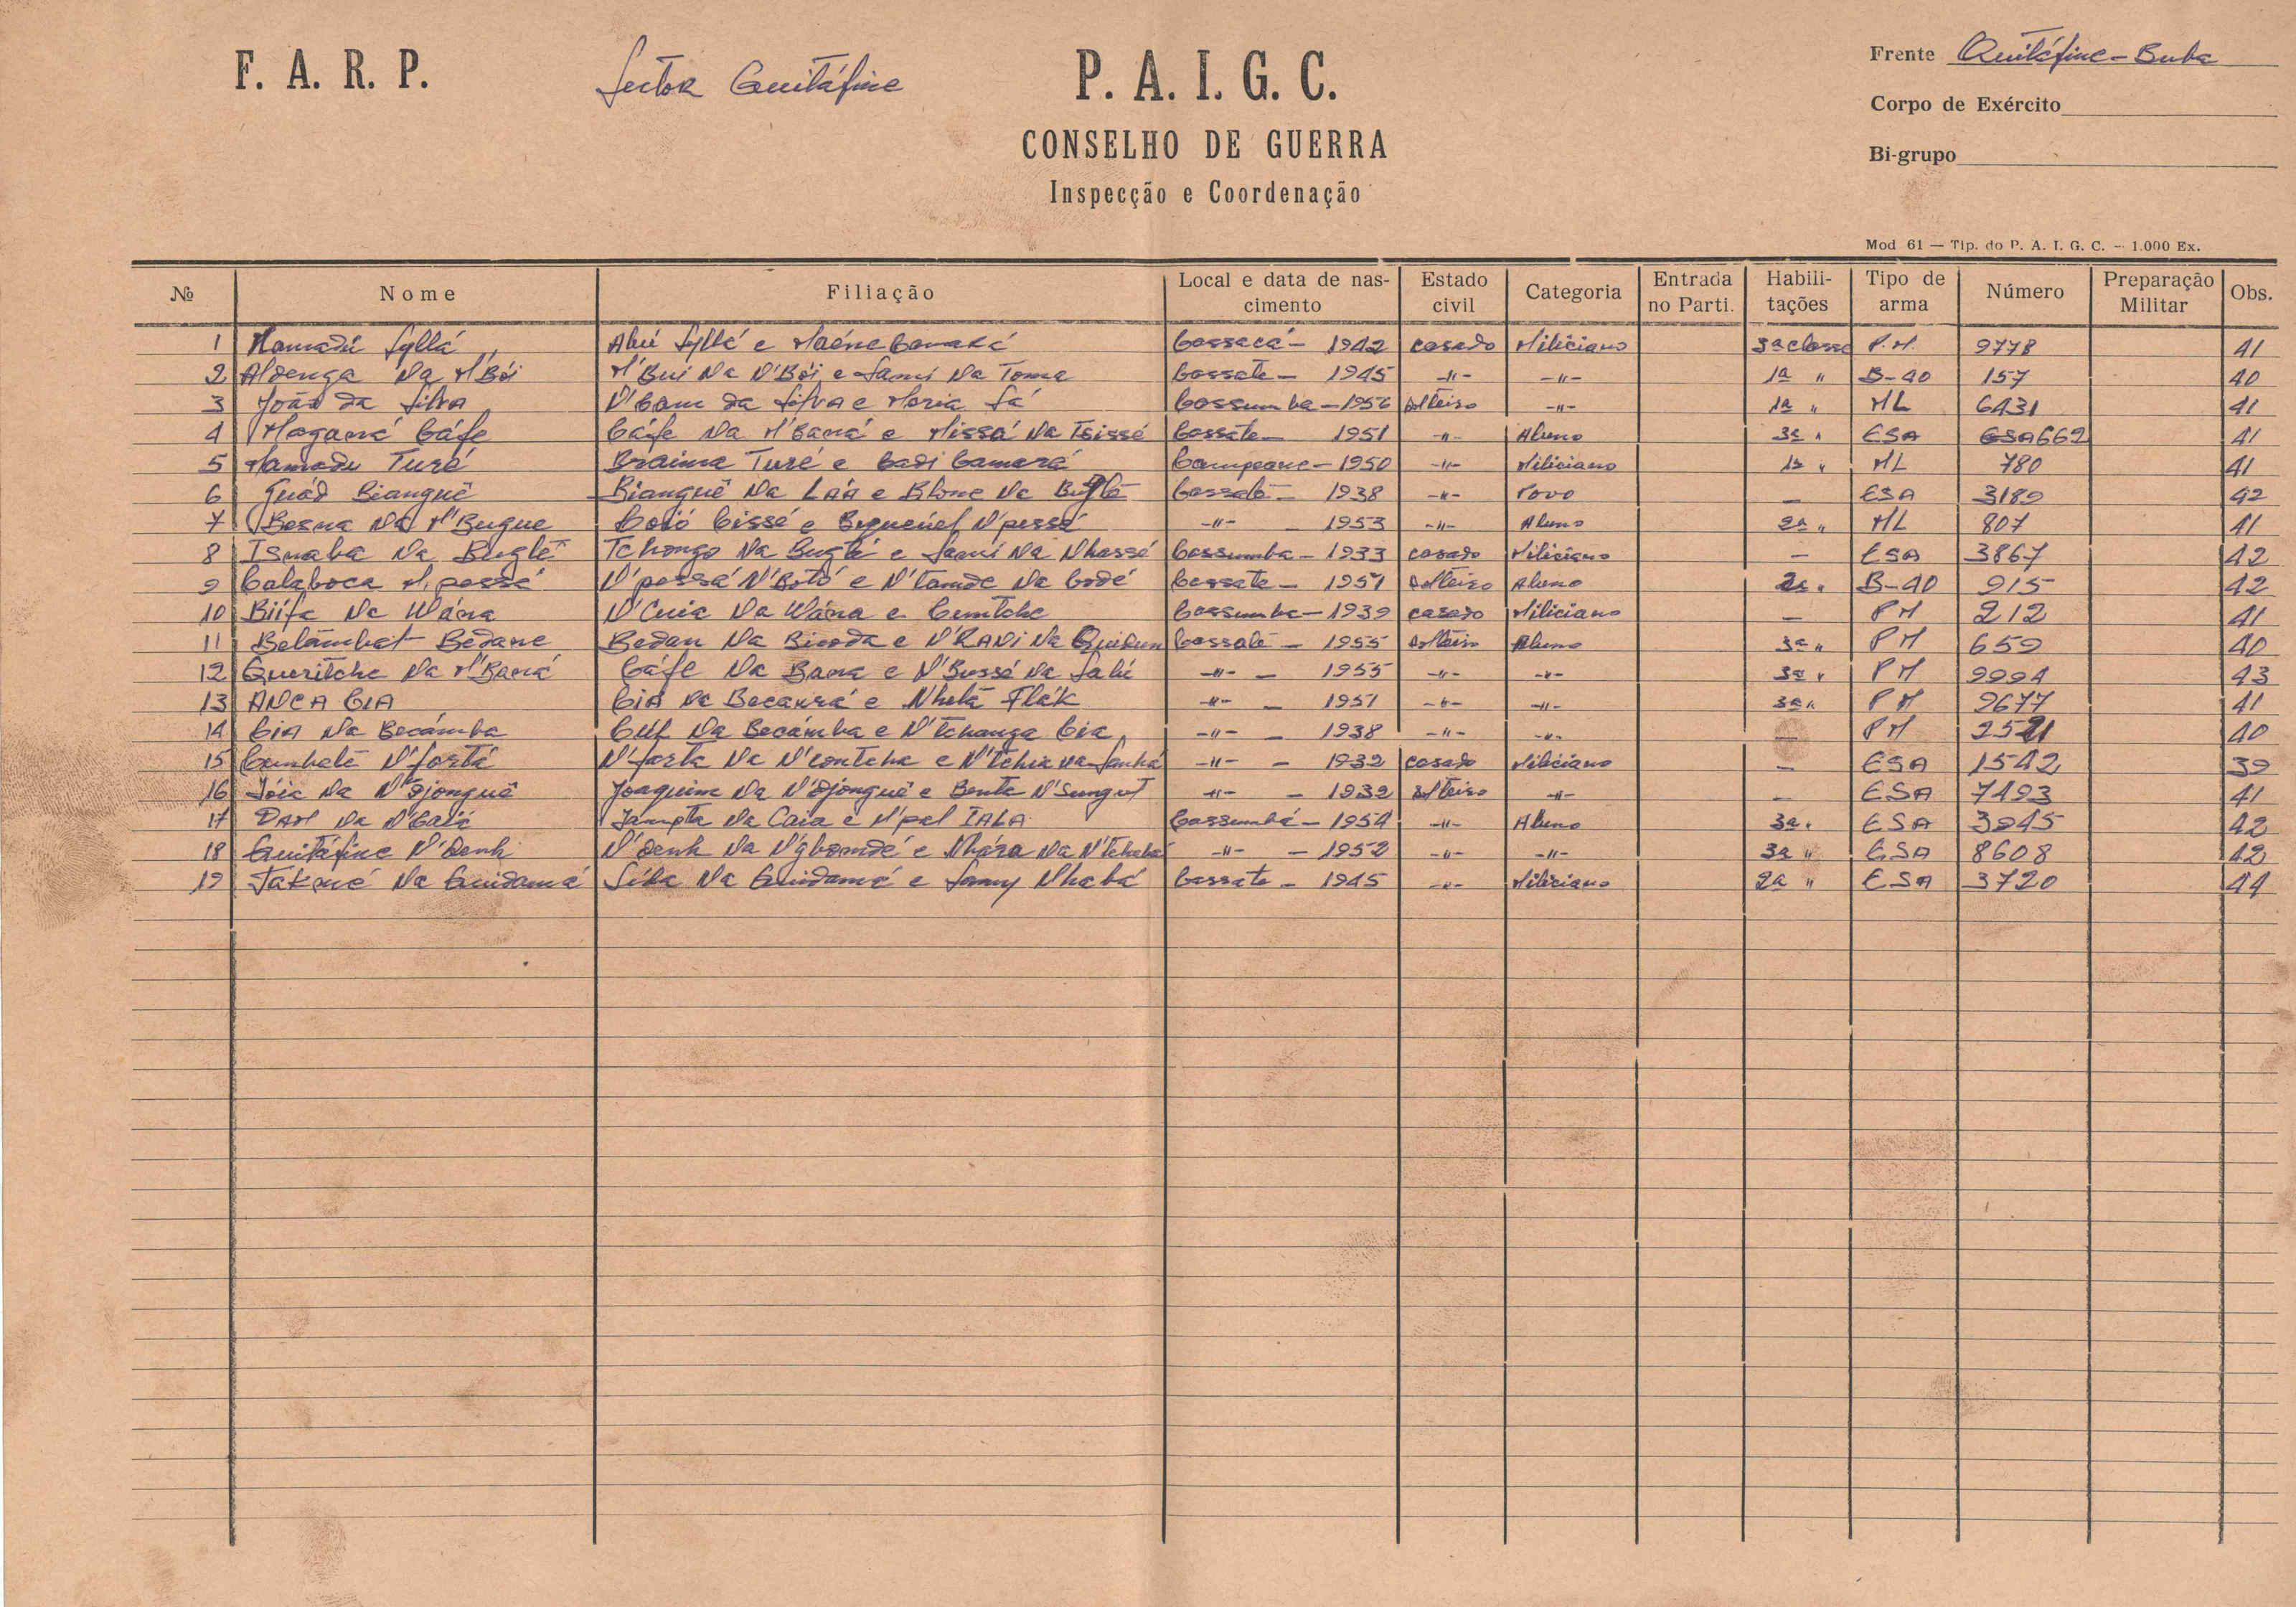 F. A. R. P.
Sector Quitáfine
P. A. I. G. C.
CONSELHO DE GUERRA
Inspecção e Coordenação
Frente Quitáfine - Buba
Corpo de Exército
Bi-grupo
Mod 61 — Tip. do P. A. I. G. C. — 1.000 Ex.
№ Nome Filiação Local e data de nascimento Estado civil Categoria Entrada no Parti. Habilitações Tipo de arma Número Preparação Militar Obs.
1 Mamadú Syllá Abú Syllá e Camará Cassacá - 1942 casado Miliciano 3ª classe P.M. 9778 41
2 Aldenga Na M'Bói M'Bui Na N'Bói e Sami Na Toma Cassate - 1945 -"- -"- 1ª " B-40 157 40
3 João da Silva N'Cam da Silva e Maria Sá Cassumba - 1956 solteiro -"- 1ª " ML 6431 41
4 Maganá Cáfe Cáfe Na M'Baná e Missá Na Tsissé Cassate - 1951 -"- Aluno 3ª " ESA ESA662 41
5 Mamadu Turé Braima Turé e Cadi Camará Campeane - 1950 -"- Miliciano 1ª " ML 780 41
6 Bianguê Bianguê Na Láa e Blone Na Buglê - 1938 -"- Povo — ESA 3189 42
7 Besna Na M'Bugue Coió Cissé e N'pessé -"- - 1953 -"- Aluno 2ª " ML 807 41
8 Isnaba Na Buglê Tchongo Na Buglê e Sami Na Nhassé Cassumba - 1933 casado Miliciano — ESA 3867 42
9 Calaboca N'pessé N'pessá N'Botó e N'tamde Na Codé Cassate - 1951 solteiro Aluno 2ª " B-40 915 42
10 Biífa Na Wána N'Cuia Na Wána e Cumtche Cassumba - 1939 casado Miliciano — PM 212 41
11 Belâmbat Bedane Bedan Na Bicoda e N'RANI Na - 1955 solteiro Aluno 3ª " PM 659 40
12 Queritche Na M'Baná Cáfe Na Bana e N'Bussé Na Salú -"- - 1955 -"- -"- 3ª " PM 9994 43
13 ANCA CIA CIA Na Becamrá e Nhetá Flák -"- - 1951 -"- -"- 3ª " PM 9677 41
14 Cia Na Becámba Na Becámba e N'tchanga Cia -"- - 1938 -"- -"- PM 40
15 Cumbatê N'fortá N'forta Na N'contcha e N'tchia na Sanhá -"- - 1932 casado Miliciano — ESA 1542 39
16 Jóia Na N'djonguê Joaquim Na N'djonguê e Benta N'Sungut -"- - 1932 solteiro -"- — ESA 7493 41
17 DAM Na N'Calá Jampta Na Caia e N'pal IALA Cassumbá - 1954 -"- Aluno 3ª " ESA 3045 42
18 Quitáfine N'Denh N'Denh Na N'ghomdé e Nhára Na N'tchabá -"- - 1952 -"- -"- 3ª " ESA 8608 42
19 Takená Na Guidamá Sida Na Guidamá e Sanny Nhabá Cassate - 1945 -"- Miliciano 2ª " ESA 3720 44